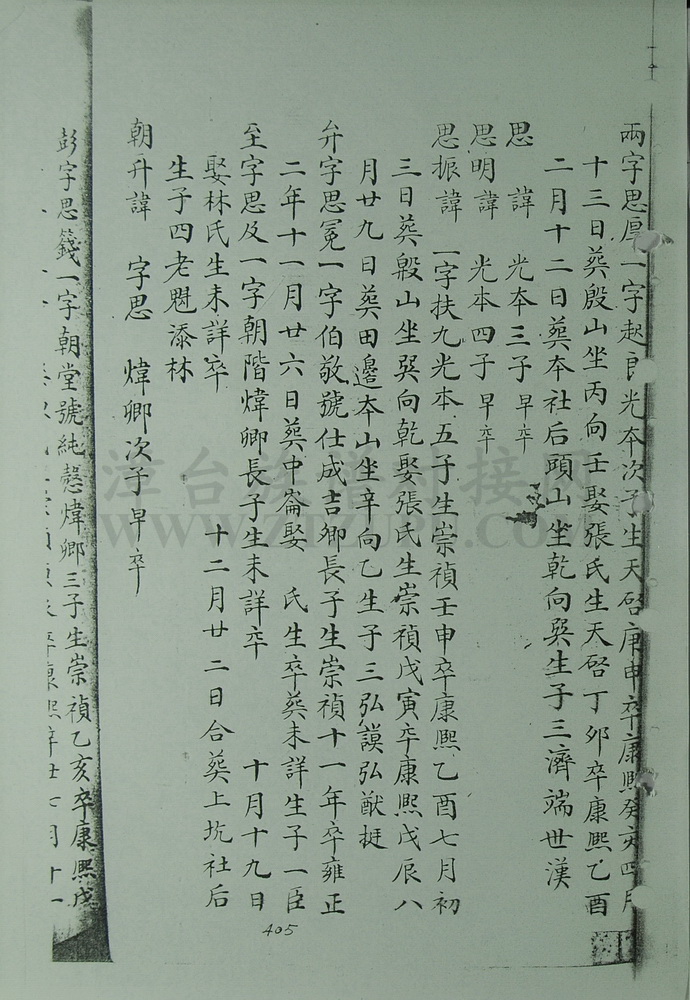 兩字思厚一字起良光本次子生天啓庚申卒康熙癸亥四月
十三日葬殷山坐丙向壬娶張氏生天啓丁卯卒康熙乙酉
二月十二日葬本社后頭山坐乾向巽生子三濟端世漢
思　諱　光本三子早卒
思明諱　光本四子早卒
思振諱　一字扶九光本五子生崇禎壬申卒康熙乙酉七月初
三日葬殷山坐巽向乾娶張氏生崇禎戊寅卒康熙戊辰八
月廿九日葬田邊本山坐辛向乙生子三弘謨弘猷挺
弁字思冕一字伯敬號仕成吉卿長子生崇禎十一年卒雍正
二年十一月廿六日葬中崙娶　氏生卒葬未詳生子一臣
至字思及一字朝階煒卿長子生未詳卒　十月十九日
娶林氏生未詳卒　十二月廿二日合葬上坑社后
生子四老魁添林
朝升諱　字思　煒卿次子早卒
彭字思籛一字朝堂號純慤煒卿三子生崇禎乙亥卒康熙戊
卒康熙辛丑七月十一
405
漳台族谱对接网
WWW.ZTZUPU.COM